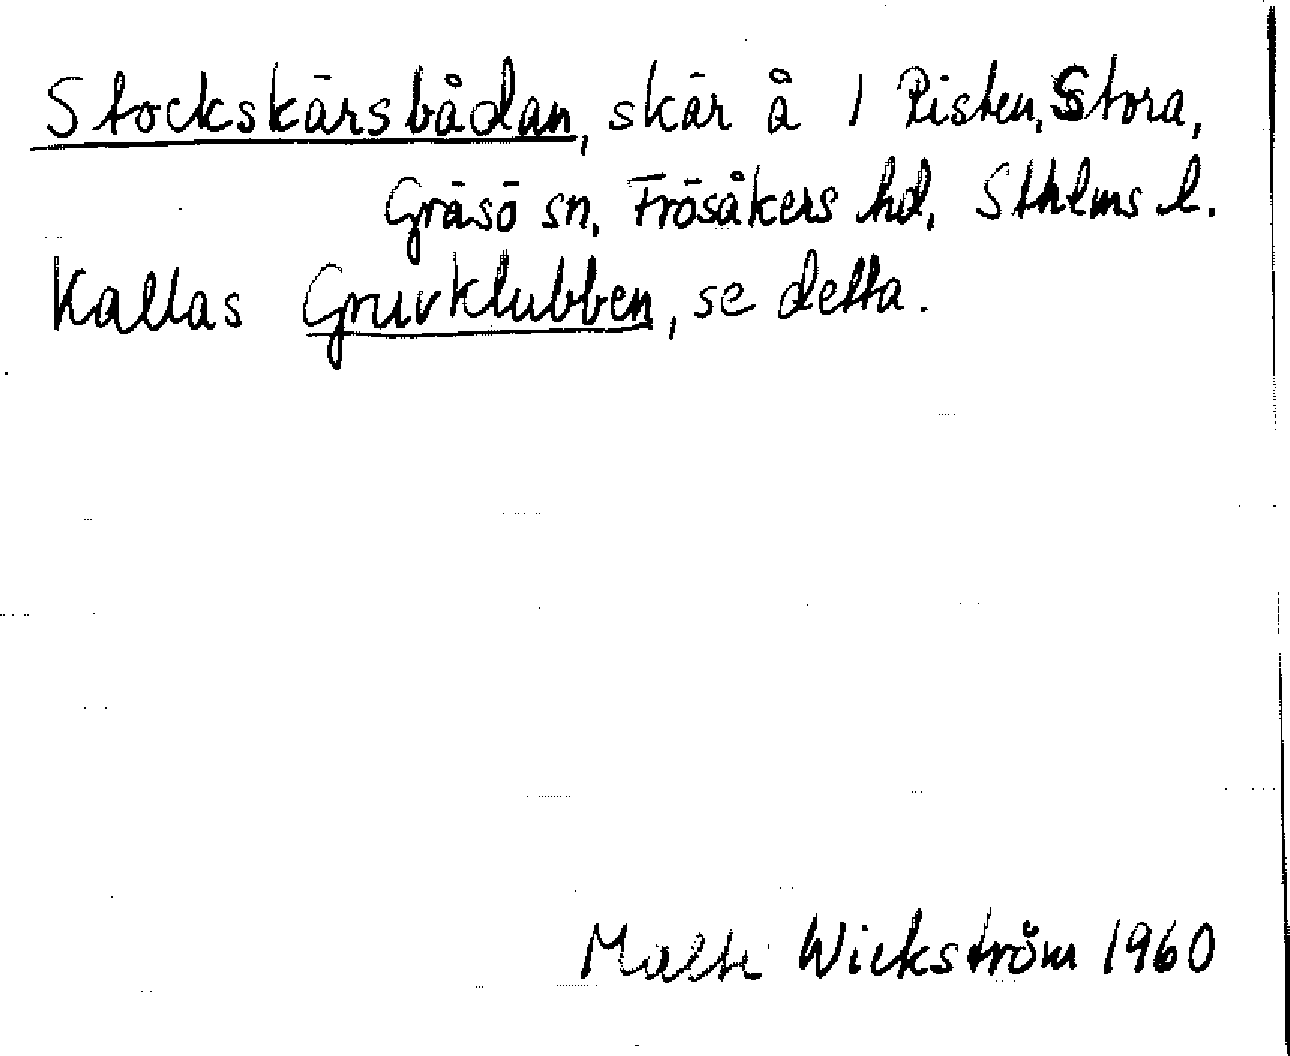 Stockskärsbådan, skär å 1 Risten, Stora,
Gräsö sn, Frösåkers hd, Sthlms l.
Kallas Gruvklubben, se detta.
Malte Wickström 1960